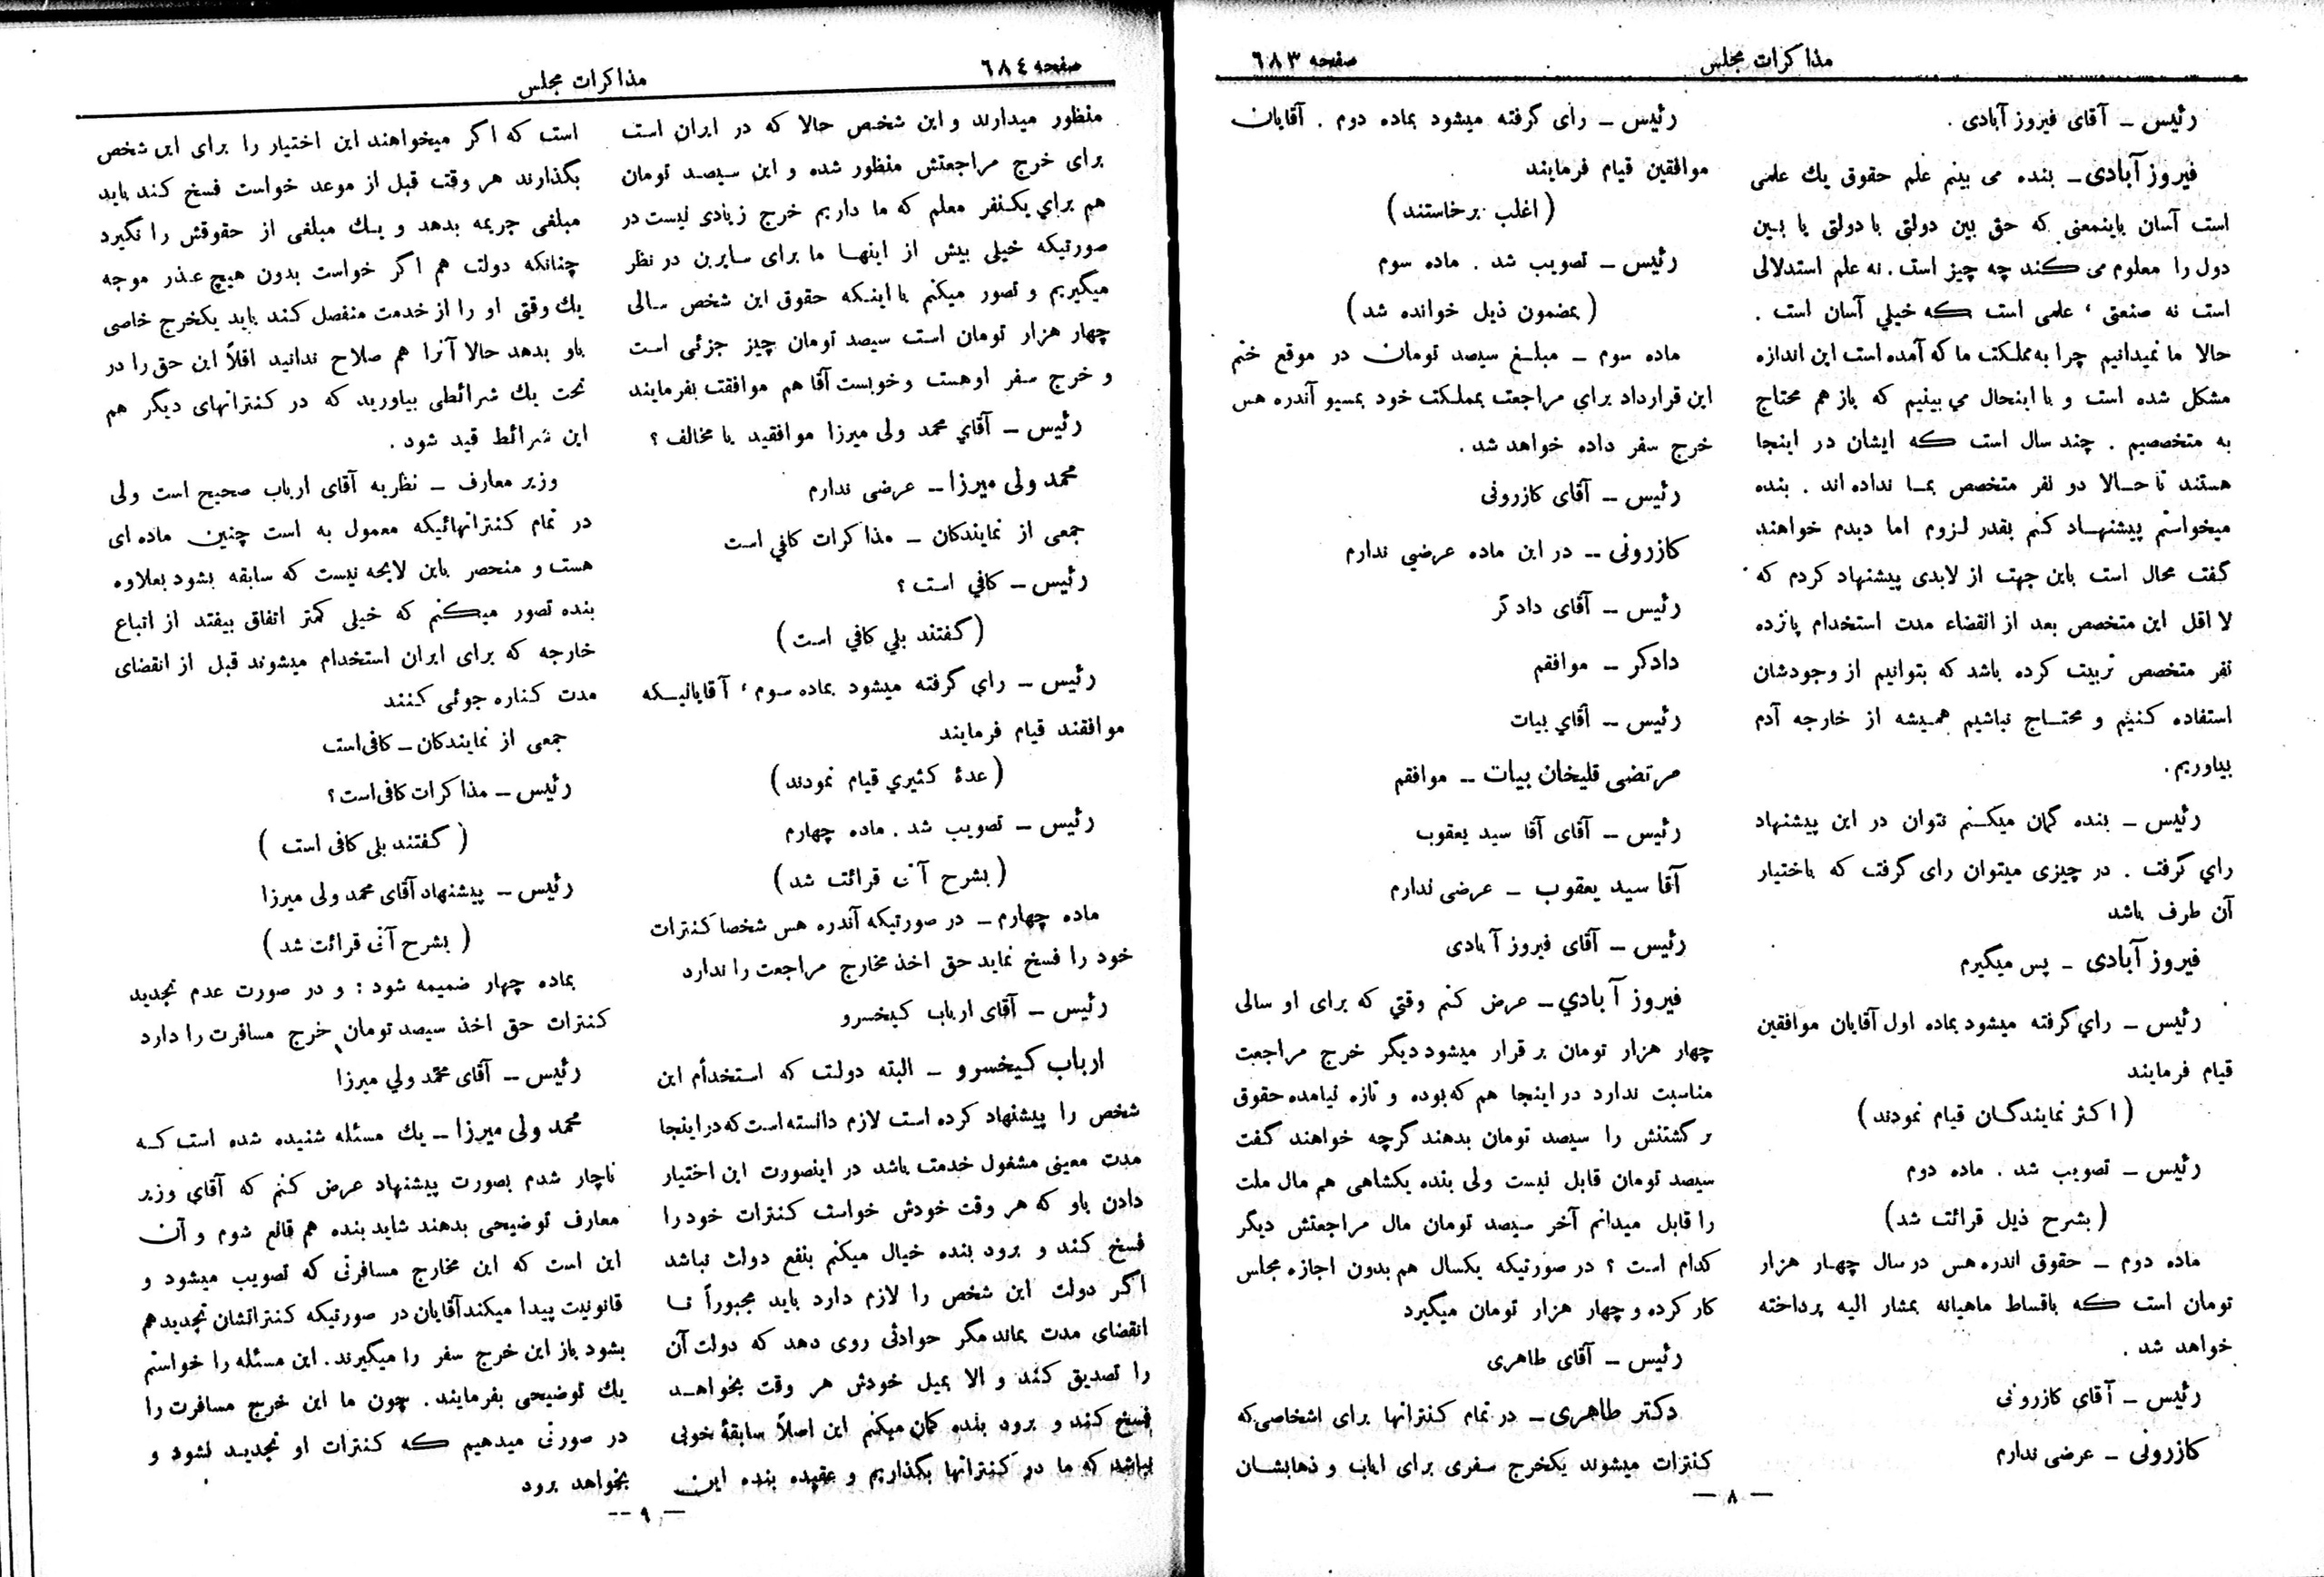 مذاکرات مجلس
صفحه ٦٨٣
رئیس ــ آقای فیروز آبادی .
فیروز آبادی ــ بنده می بینم علم حقوق یك علمی
است آسان باینمعنی که حق بین دولتی با دولتی یا بین
دول را معلوم می کند چه چیز است . نه علم استدلالی
است نه صنعتی ، علمی است که خیلی آسان است .
حالا ما نمیدانیم چرا به مملکت ما که آمده است این اندازه
مشکل شده است و با اینحال می بینیم که باز هم محتاج
به متخصصیم . چند سال است که ایشان در اینجا
هستند تا حالا دو نفر متخصص بما نداده اند . بنده
میخواستم پیشنهاد کنم بقدر لزوم اما دیدم خواهند
گفت محال است باین جهت از لابدی پیشنهاد کردم که
لا اقل این متخصص بعد از انقضاء مدت استخدام پانزده
نفر متخصص تربیت کرده باشد که بتوانیم از وجودشان
استفاده کنیم و محتاج نباشیم همیشه از خارجه آدم
بیاوریم .
رئیس ــ بنده گمان میکنم نتوان در این پیشنهاد
رای گرفت . در چیزی میتوان رای گرفت که باختیار
آن طرف باشد
فیروز آبادی ــ پس میگیرم
رئیس ــ رای گرفته میشود بماده اول آقایان موافقین
قیام فرمایند
( اکثر نمایندگان قیام نمودند )
رئیس ــ تصویب شد . ماده دوم
( بشرح ذیل قرائت شد )
ماده دوم ــ حقوق اندره هس در سال چهار هزار
تومان است که باقساط ماهیانه بمشار الیه پرداخته
خواهد شد .
رئیس ــ آقای کازرونی
کازرونی ــ عرضی ندارم
رئیس ــ رای گرفته میشود بماده دوم . آقایان
موافقین قیام فرمایند
( اغلب برخاستند )
رئیس ــ تصویب شد . ماده سوم
( بمضمون ذیل خوانده شد )
ماده سوم ــ مبلغ سیصد تومان در موقع ختم
این قرارداد برای مراجعت بمملکت خود بمسیو آندره هس
خرج سفر داده خواهد شد .
رئیس ــ آقای کازرونی
کازرونی ــ در این ماده عرضی ندارم
رئیس ــ آقای دادگر
دادگر ــ موافقم
رئیس ــ آقای بیات
مرتضی قلیخان بیات ــ موافقم
رئیس ــ آقای آقا سید یعقوب
آقا سید یعقوب ــ عرضی ندارم
رئیس ــ آقای فیروز آبادی
فیروز آبادی ــ عرض کنم وقتی که برای او سالی
چهار هزار تومان برقرار میشود دیگر خرج مراجعت
مناسبت ندارد در اینجا هم که بوده و تازه نیامده حقوق
برگشتنش را سیصد تومان بدهند گرچه خواهند گفت
سیصد تومان قابل نیست ولی بنده یکشاهی هم مال ملت
را قابل میدانم آخر سیصد تومان مال مراجعتش دیگر
کدام است ؟ در صورتیکه یکسال هم بدون اجازه مجلس
کار کرده و چهار هزار تومان میگیرد
رئیس ــ آقای طاهری
دکتر طاهری ــ در تمام کنتراتها برای اشخاصی که
کنترات میشوند یکخرج سفری برای ایاب و ذهابشان
— ٨ —
صفحه ٦٨٤
مذاکرات مجلس
منظور میدارند و این شخص حالا که در ایران است
برای خرج مراجعتش منظور شده و این سیصد تومان
هم برای یکنفر معلم که ما داریم خرج زیادی نیست در
صورتیکه خیلی بیش از اینها ما برای سایرین در نظر
میگیریم و تصور میکنم با اینکه حقوق این شخص سالی
چهار هزار تومان است سیصد تومان چیز جزئی است
و خرج سفر اوهست وخوبست آقا هم موافقت بفرمایند
رئیس ــ آقای محمد ولی میرزا موافقید یا مخالف ؟
محمد ولی میرزا ــ عرضی ندارم
جمعی از نمایندکان ــ مذاکرات کافی است
رئیس ــ کافی است ؟
( گفتند بلی کافی است )
رئیس ــ رای گرفته میشود بماده سوم ، آقایانیکه
موافقند قیام فرمایند
( عدهٔ کثیری قیام نمودند )
رئیس ــ تصویب شد . ماده چهارم
( بشرح آتی قرائت شد )
ماده چهارم ــ در صورتیکه آندره هس شخصا کنترات
خود را فسخ نماید حق اخذ مخارج مراجعت را ندارد
رئیس ــ آقای ارباب کیخسرو
ارباب کیخسرو ــ البته دولت که استخدام این
شخص را پیشنهاد کرده است لازم دانسته است که در اینجا
مدت معینی مشغول خدمت باشد در اینصورت این اختیار
دادن باو که هر وقت خودش خواست کنترات خود را
فسخ کند و برود بنده خیال میکنم بنفع دولت نباشد
اگر دولت این شخص را لازم دارد باید مجبوراً تا
انقضای مدت بماند مگر حوادثی روی دهد که دولت آن
را تصدیق کند و الا بمیل خودش هر وقت بخواهد
فسخ کند و برود بنده گمان میکنم این اصلاً سابقهٔ خوبی
نباشد که ما در کنتراتها بگذاریم و عقیده بنده این
است که اگر میخواهند این اختیار را برای این شخص
بگذارند هر وقت قبل از موعد خواست فسخ کند باید
مبلغی جریمه بدهد و یك مبلغی از حقوقش را نگیرد
چنانکه دولت هم اگر خواست بدون هیچ عذر موجه
یك وقتی او را از خدمت منفصل کند باید یکخرج خاصی
باو بدهد حالا آنرا هم صلاح ندانید اقلاً این حق را در
تحت یك شرائطی بیاورید که در کنتراتهای دیگر هم
این شرائط قید شود .
وزیر معارف ــ نظریه آقای ارباب صحیح است ولی
در تمام کنتراتهائیکه معمول به است چنین ماده ای
هست و منحصر باین لایحه نیست که سابقه بشود بعلاوه
بنده تصور میکنم که خیلی کمتر اتفاق بیفتد از اتباع
خارجه که برای ایران استخدام میشوند قبل از انقضای
مدت کناره جوئی کنند
جمعی از نمایندکان ــ کافی است
رئیس ــ مذاکرات کافی است ؟
( گفتند بلی کافی است )
رئیس ــ پیشنهاد آقای محمد ولی میرزا
( بشرح آتی قرائت شد )
بماده چهار ضمیمه شود : و در صورت عدم تجدید
کنترات حق اخذ سیصد تومان خرج مسافرت را دارد
رئیس ــ آقای محمد ولی میرزا
محمد ولی میرزا ــ یك مسئله شنیده شده است که
ناچار شدم بصورت پیشنهاد عرض کنم که آقای وزیر
معارف توضیحی بدهند شاید بنده هم قانع شوم و آن
این است که این مخارج مسافرتی که تصویب میشود و
قانونیت پیدا میکند آقایان در صورتیکه کنتراتشان تجدید هم
بشود باز این خرج سفر را میگیرند . این مسئله را خواستم
یك توضیحی بفرمایند . چون ما این خرج مسافرت را
در صورتی میدهیم که کنترات او تجدید نشود و
بخواهد برود
— ٩ —